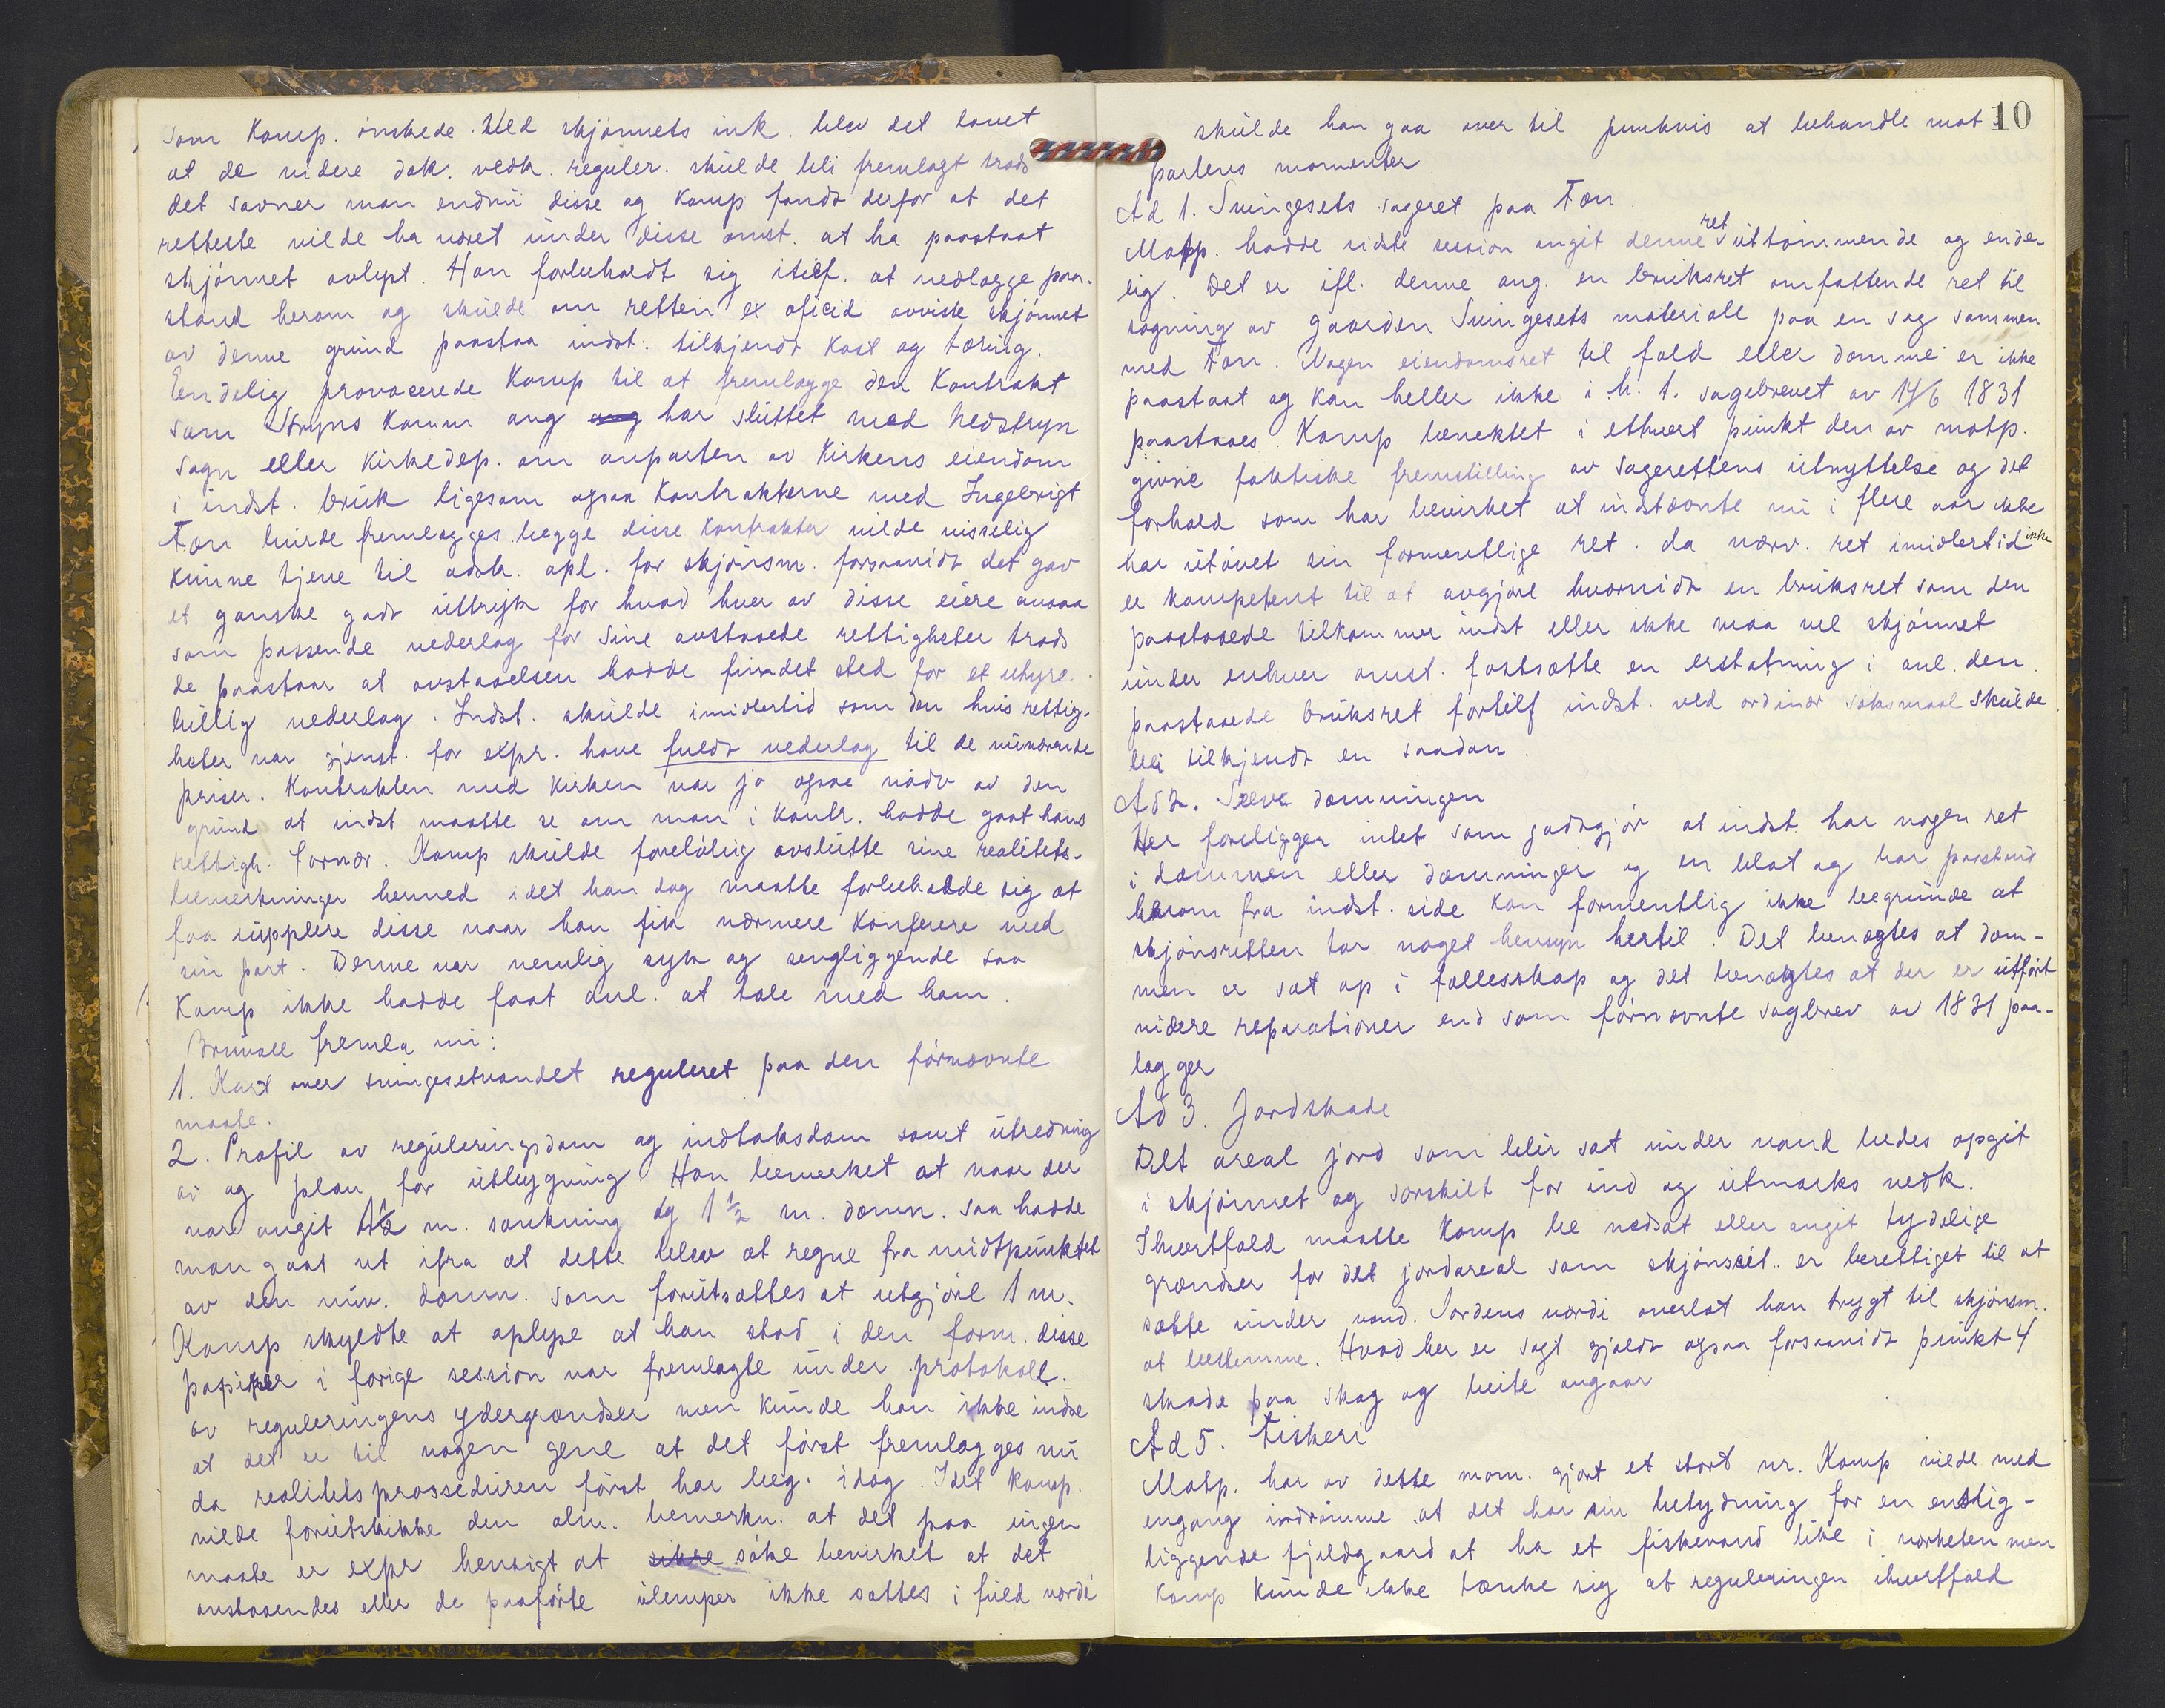 som Komp. ønskede. Ved skjønnets ink. blev det lovet
at de videre dok. vedk. reguler. skulde bli fremlagt trods
det savner man endnu disse og Komp fandt derfor at det
retteste vilde ha været under disse omst. at ha paastaat
skjønnet avlyst. Han forbeholdt sig itilf. at nedlægge paa-
stand herom og skulde om retten ex oficid avviste skjønnet
av denne grund paastaa indst. tilkjendt kost og tæring.
Endelig provocerede Komp til at fremlægge den Kontrakt
som Stryns Komm ang har sluttet med Nedstryn
Sogn eller Kirkedep. om anparten av Kirkens eiendom
i indst. bruk ligesom ogsaa Kontrakterne med Ingebrigt
Ton burde fremlægges begge disse kontrakter vilde visselig
kunne tjene til adsk. opl. for skjønsm. forsaavidt det gav
et ganske godt uttryk for hvad hver av disse eiere ansaa
som passende vederlag for sine avstaaede rettigheter trods
de paastaar at avstaaelsen hadde fundet sted for et uhyre
billig vederlag. Indst. skulde imidlertid som den hvis rettig-
heter var gjenst. for expr. have fuldt vederlag til de nuværende
priser. Kontrakten med Kirken var jo ogsaa nødv av den
grund at indst maatte se om man i Kontr. hadde gaat hans
rettigh. fornær. Komp skulde foreløbig avslutte sine realitets-
bemerkninger hermed idet han dog maatte forbeholde sig at
faa supplere disse naar han fik nærmere Konferere med
sin part. Denne var nemlig syk og sengliggende saa
Komp ikke hadde faat anl. at tale med ham.
Bruvoll fremla nu:
1. Kart over svingesetvandet reguleret paa den førnævnte
maate.
2. Profil av reguleringsdam og indtaksdam samt utredning
av og plan for utbygning. Han bemerket at naar der
var angit 1½ m. sænkning og 1½ m. dæmn. saa hadde
man gaat ut ifra at dette blev at regne fra midtpunktet
av den nuv. dæmn. som forutsættes at utgjøre 1 m.
Komp skyldte at oplyse at han stod i den form. disse
papirer i forige session var fremlagte under protokoll.
av reguleringens ydergrændser men kunde han ikke indse
at det er til nogen gene at det først fremlægges nu
da realitets prosseduren først har beg. idag. Idet Komp.
vilde forutskikke den alm. bemerkn. at det paa ingen
maate er expr hensigt at søke bevirket at det
avstaaendes eller de paaførte ulemper ikke sættes i fuld værdi
10
skulde han gaa over til punkvis at behandle mot
partens momenter
Ad 1. Svingesets sageret paa Ton
Motp. hadde sidste session angit denne ret uttømmende og ende-
lig. Det er ifl. denne ang. en bruksret omfattende ret til
sagning av gaarden Svingesets materiale paa en sag sammen
med Ton. Nogen eiendomsret til fald eller dæmme er ikke
paastaat og kan heller ikke i h. t. sagebrevet av 14/6 1831
paastaaes. Komp benektet i ethvert punkt den av motp.
givne faktiske fremstilling av sagerettens utnyttelse og det
forhold som har bevirket at indstævnte nu i flere aar ikke
har utøvet sin formentlige ret. da nærv. ret imidlertid ikke
er kompetent til at avgjøre hvorvidt en bruksret som den
paastaaede tilkommer indst eller ikke maa vel skjønnet
under enhver omst. fastsætte en erstatning i anl. den
paastaaede bruksret fortilf indst. ved ordinær søksmaal skulde
bli tilkjendt en saadan.
Ad 2. Selve dæmningen
Her foreligger intet som godtgjør at indst har nogen ret
i dæmmen eller dæmninger og en blot og bar paastand
herom fra indst. side kan formentlig ikke begrunde at
skjønsretten tar noget hensyn hertil. Det benægtes at dæm-
men er sat op i fællesskap og det benægtes at der er utført
videre reparationer end som førnævnte sagbrev av 1831 paa-
lægger
Ad 3. Jordskade
Det areal jord som blir sat under vand bedes opgit
i skjønnet og særskilt for ind og utmarks vedk.
Ihvertfald maatte Komp be nedsat eller angit tydelige
grændser for det jordareal som skjønsrét.. er berettiget til at
sætte under vand. Jordens værdi overlot han trygt til skjønsm.
at bestemme. Hvad her er sagt gjældt ogsaa forsaavidt punkt 4
skade paa skog og beite angaar
Ad 5. Fiskeri
Motp. har av dette mom. gjort et stort nr. Komp vilde med
engang indrømme at det har sin betydning for en enslig-
liggende fjeldgaard at ha et fiskevand like i nærheten men
Komp kunde ikke tænke sig at reguleringen ihvertfald